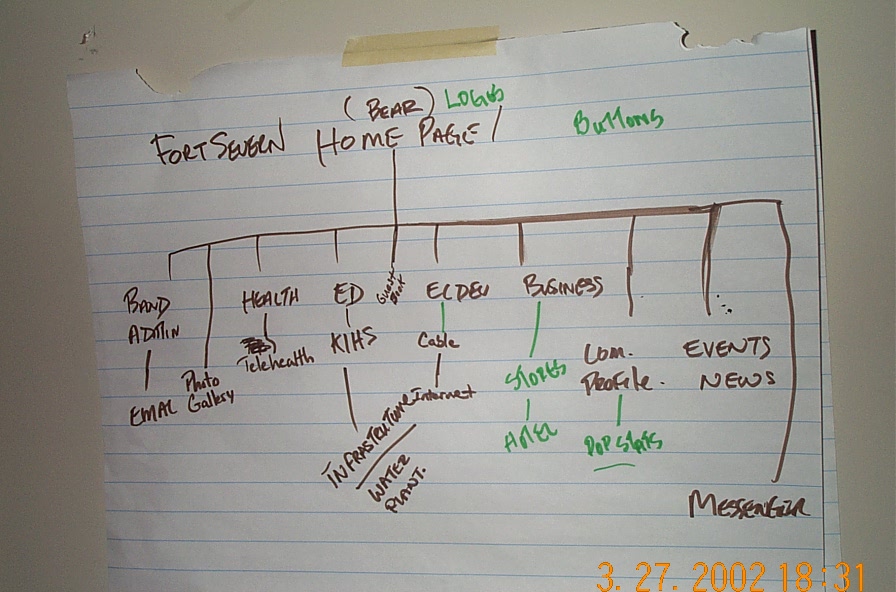 (BEAR) LOGOS
FORT SEVERN HOME PAGE /
BUTTONS
BAND
ADMIN
EMAL
Photo
Gallery
HEALTH
Telehealth
ED
KIHS
INFRASTRUCTURE
WATER
PLANT.
Guest
Book
ECDEV
Cable
Internet
BUSINESS
STORES
HOTEL
Com.
Profile.
POP Stats
EVENTS
NEWS
MESSENGER
3. 27. 2002 18:31